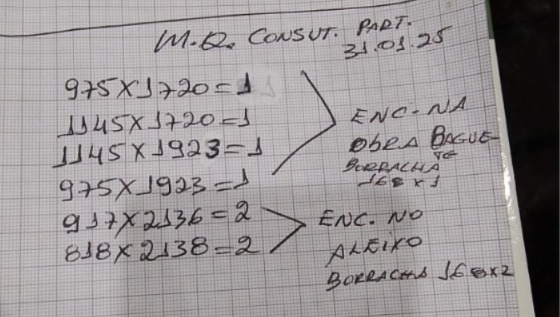 M.Q. CONSUT. PART.
31.01.25
975X1720=1
1145X1720=1
1145X1923=1
975X1923=1
917X2136=2
818X2138=2
ENC-NA
ObRA BAGUE-
TE
BORRACHA
168X1
ENC. NO
ALEIXO
BORRACHA 168X2